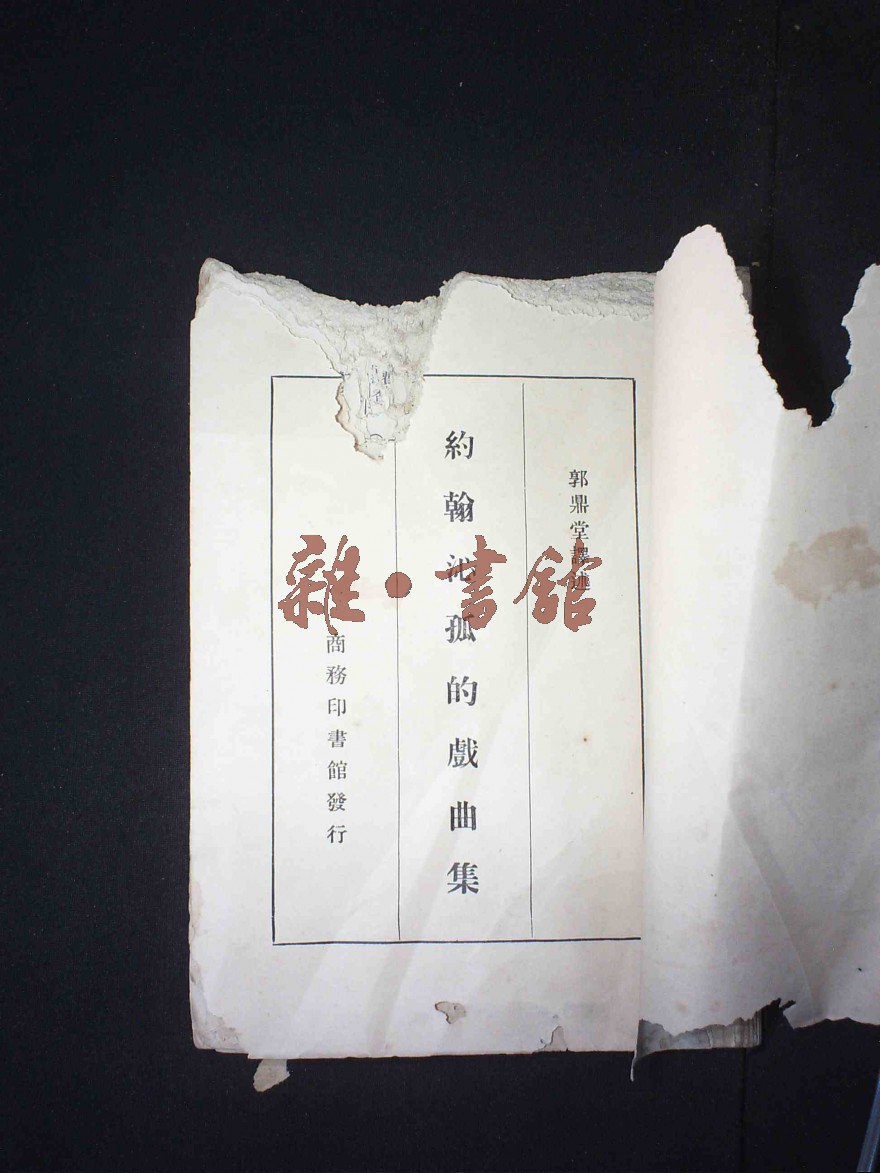 郭鼎堂譯述
約翰沁孤的戲曲集
商務印書館發行
雜·書館